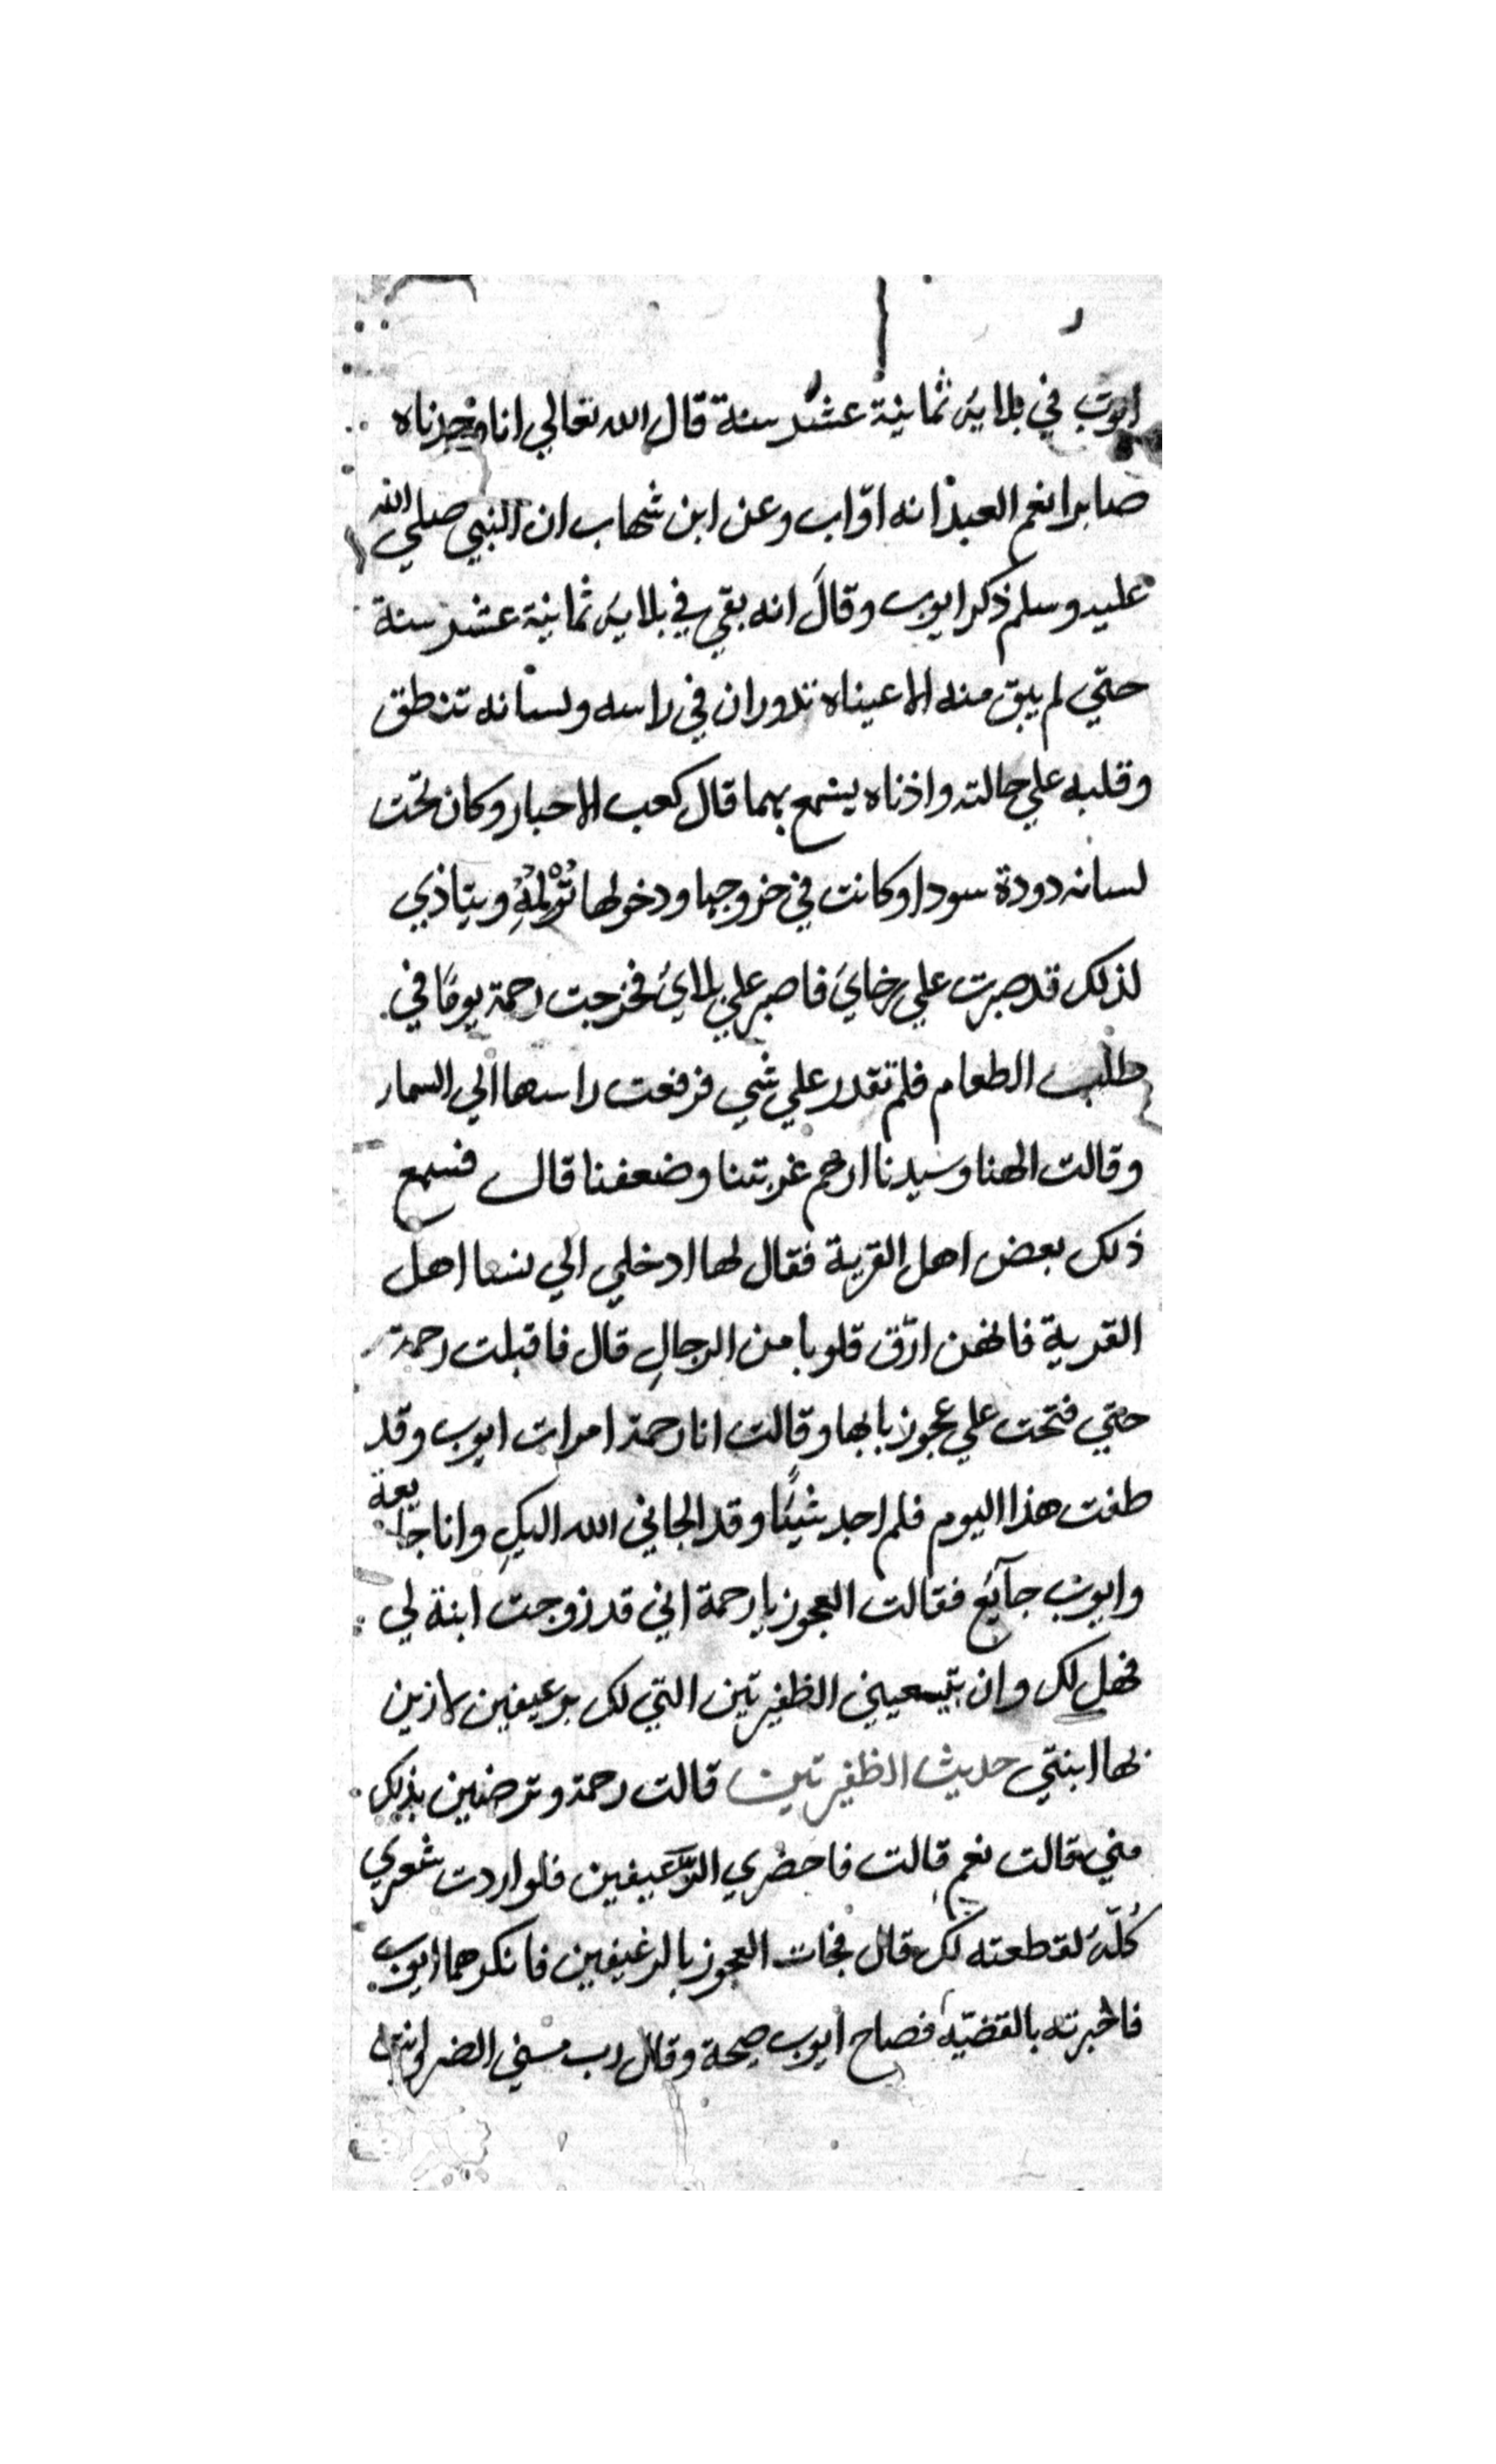 ايوب في بلايه ثمانية عشر سنة قال الله تعالي انا وجدناه
صابرا نعم العبد انه اوّاب وعن ابن شهاب ان النبي صلي الله
عليه وسلم ذكر ايوب وقالَ انه بقي في بلايه ثمانية عشر سنة
حتي لم يبق منه الا عيناه تدوران في راسه ولسانه تنطق
وقلبه علي حالته واذناه يسمع بهما قال كعب الاحبار وكان تحت
لسانه دودة سودا وكانت في خروجها ودخولها تُؤْلمُهُ ويتاذي
لذلك قد صبرت علي رخايَ فاصبر علي بلايَ فخرجت رحمة يومًا في
طلب الطعام فلم تقدر علي شي فرفعت راسها الي السماء
وقالت الهنا وسيدنا ارحم غربتنا وضعفنا قال فسمع
ذلك بعض اهل القرية فقال لها ادخلي الي نسا اهل
القرية فانهن ارّق قلوبا من الرجالِ قال فاقبلت رحمة
حتي فتحت علي عجوز بابها وقالت انا رحمة امرات ايوب وقد
طفت هذا اليوم فلم اجد شيئًا وقد الجاني الله اليكِ وانا جايعة
وايوب جآئع فقالت العجوز يا رحمة اني قد زوجت ابنة لي
فهل لك وان تبيعيني الظفيرتين التي لك برغيفين لازين
بها ابنتي حديث الظفيرتين قالت رحمة وترضين بذلك
مني قالت نعم قالت فاحضري الرَّغيفين فلو اردت شعري
كُلّه لقطعته لك قال فجات العجوز بالرغيفين فانكرهما ايوب
فاخبرته بالقضيّه فصاح ايوب صيحة وقال رب مسني الضر وانت